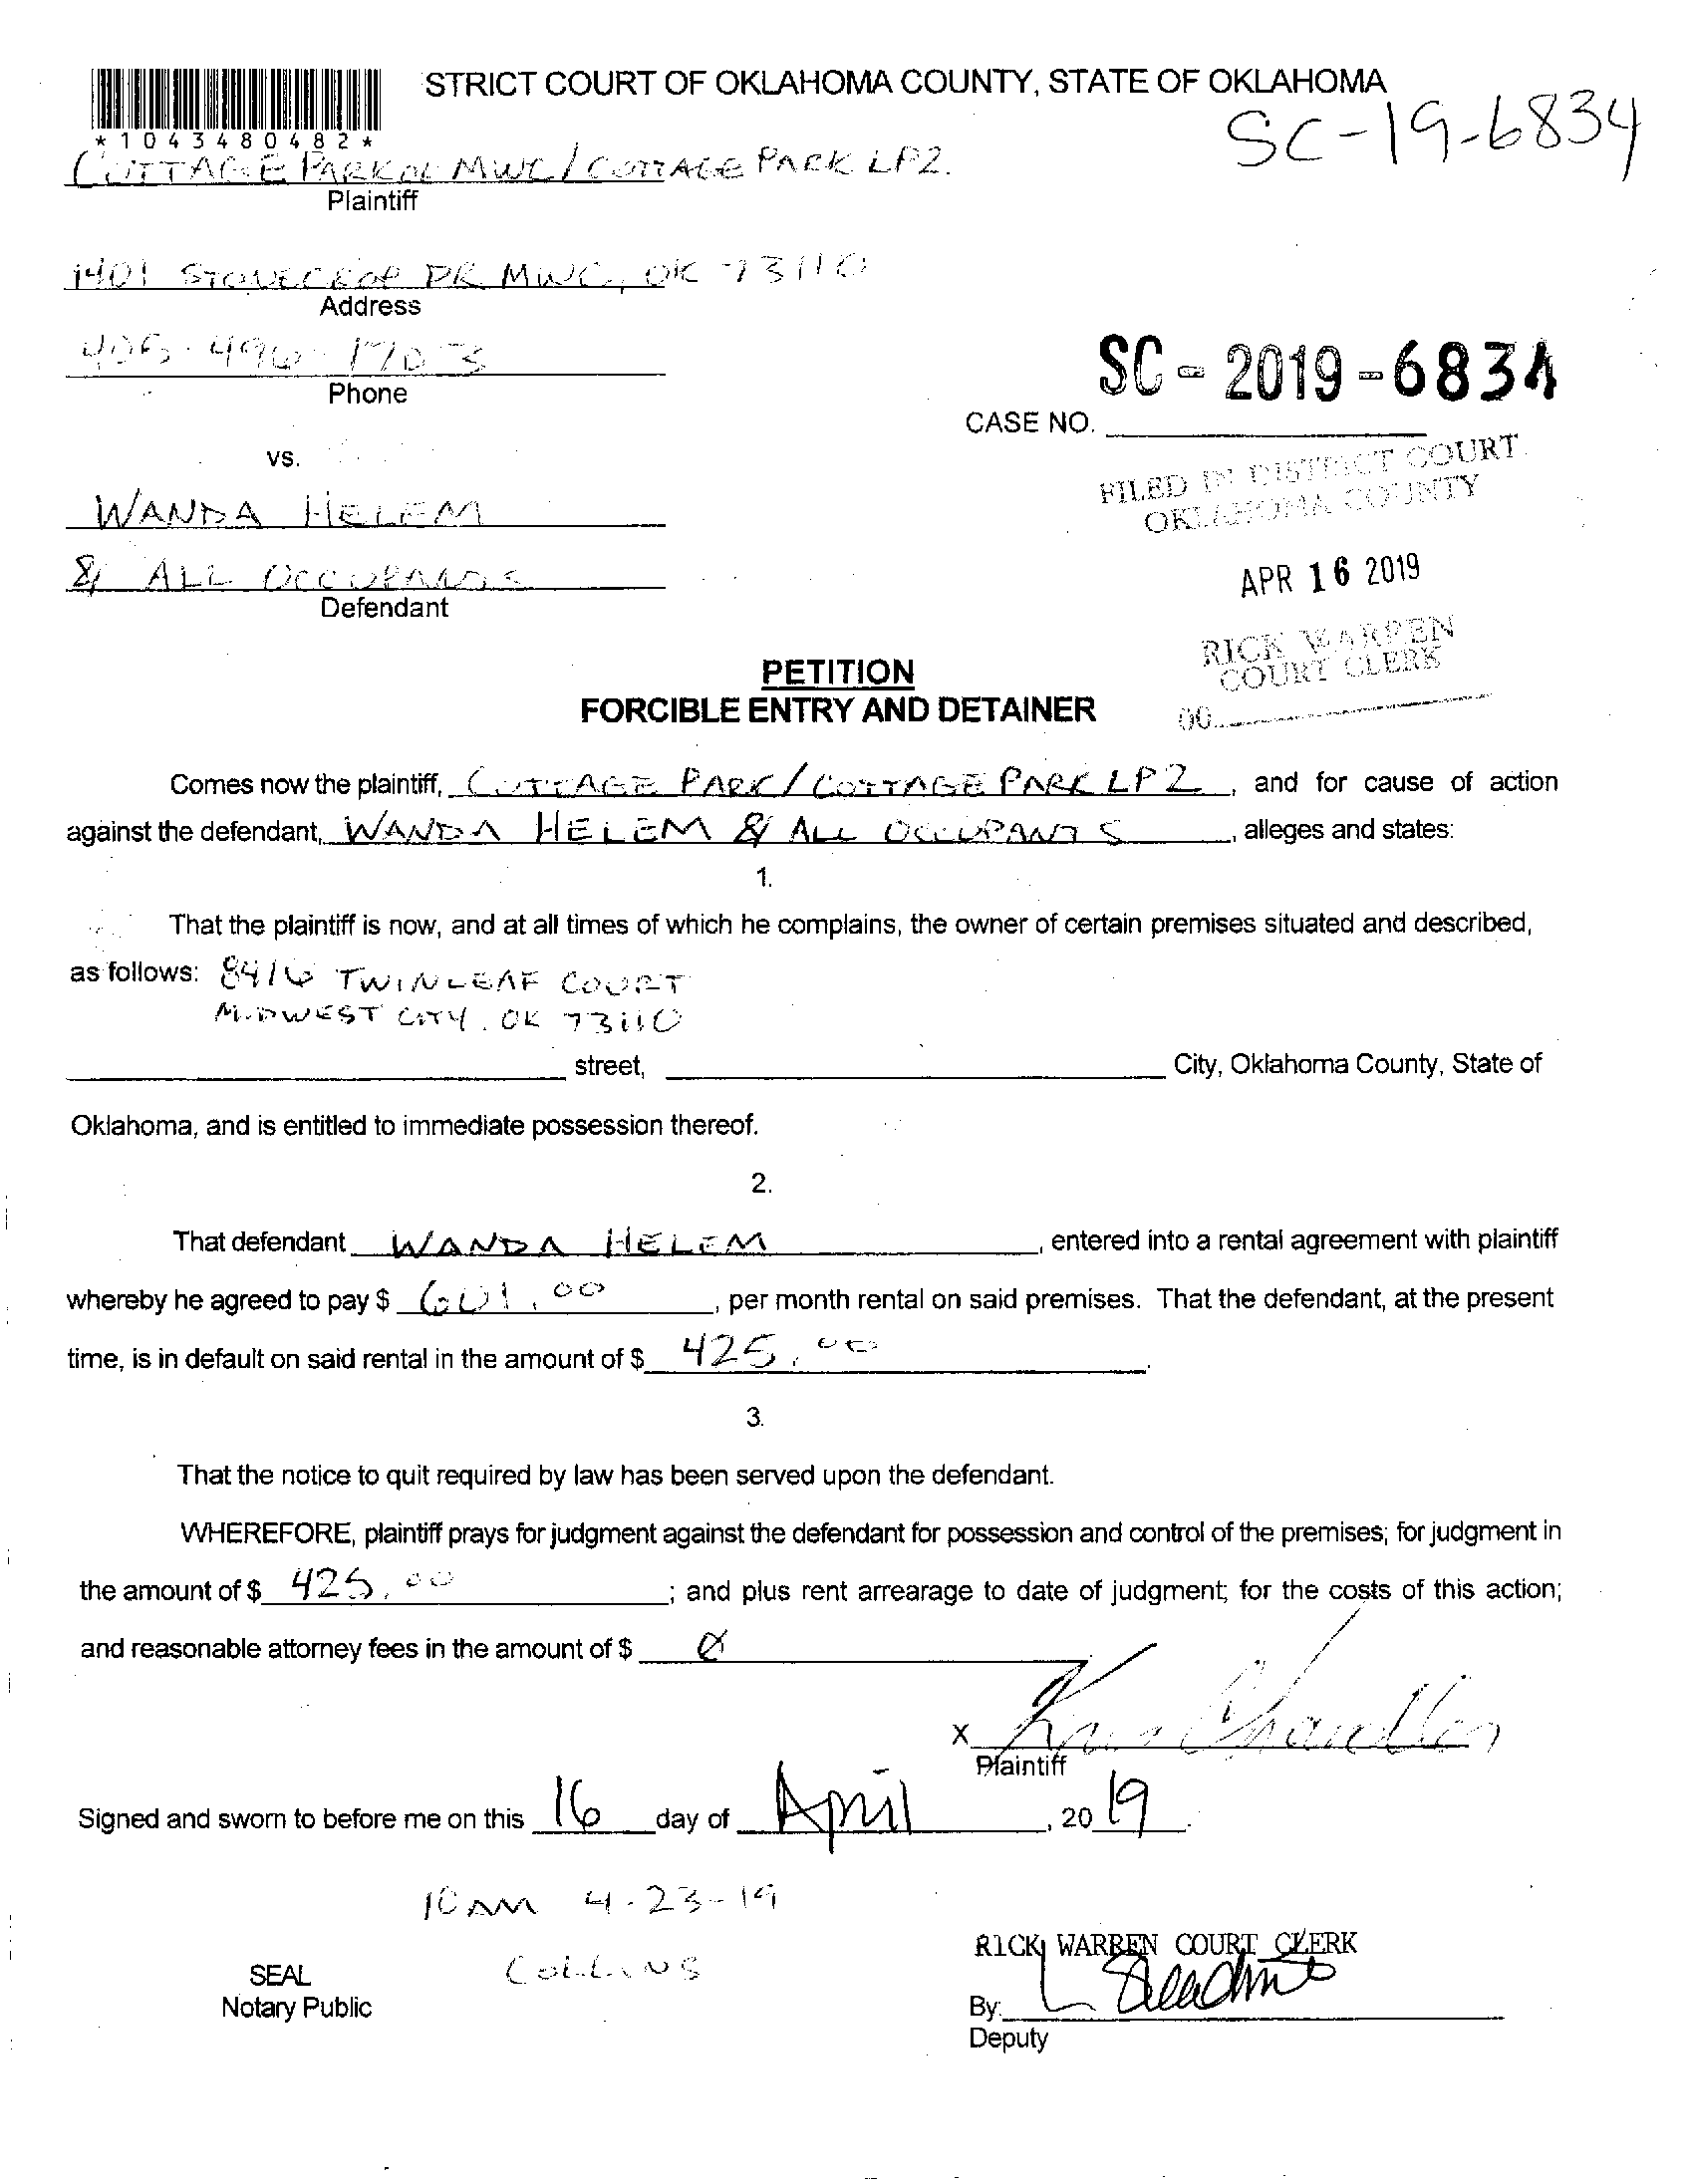 STRICT COURT OF OKLAHOMA COUNTY, STATE OF OKLAHOMA
*1043480482*
SC-19-6834
COTTAGE PARK OF MWC/COTTAGE PARK LP2.
Plaintiff
1401 STONECROP DR MWC, OK 73110
Address
405-496-1703
Phone
SC-2019-6834
CASE NO.
vs.
FILED IN DISTRICT COURT
OKLAHOMA COUNTY
WANDA HELEM
& ALL OCCUPANTS
Defendant
APR 16 2019
RICK WARREN
COURT CLERK
PETITION
FORCIBLE ENTRY AND DETAINER
Comes now the plaintiff, COTTAGE PARK/COTTAGE PARK LP2, and for cause of action
against the defendant, WANDA HELEM & ALL OCCUPANTS, alleges and states:
1.
That the plaintiff is now, and at all times of which he complains, the owner of certain premises situated and described,
as follows: 8416 TWINLEAF COURT
MIDWEST CITY, OK 73110
street, City, Oklahoma County, State of
Oklahoma, and is entitled to immediate possession thereof.
2.
That defendant WANDA HELEM, entered into a rental agreement with plaintiff
whereby he agreed to pay $ 601.00, per month rental on said premises. That the defendant, at the present
time, is in default on said rental in the amount of $ 425.00.
3.
That the notice to quit required by law has been served upon the defendant.
WHEREFORE, plaintiff prays for judgment against the defendant for possession and control of the premises; for judgment in
the amount of $ 425.00; and plus rent arrearage to date of judgment; for the costs of this action;
and reasonable attorney fees in the amount of $ Ø
X Chandler
Plaintiff
Signed and sworn to before me on this 16 day of April, 2019.
10 AM 4-23-19
COLLINS
RICK WARREN COURT CLERK
SEAL
Notary Public
By:
Deputy